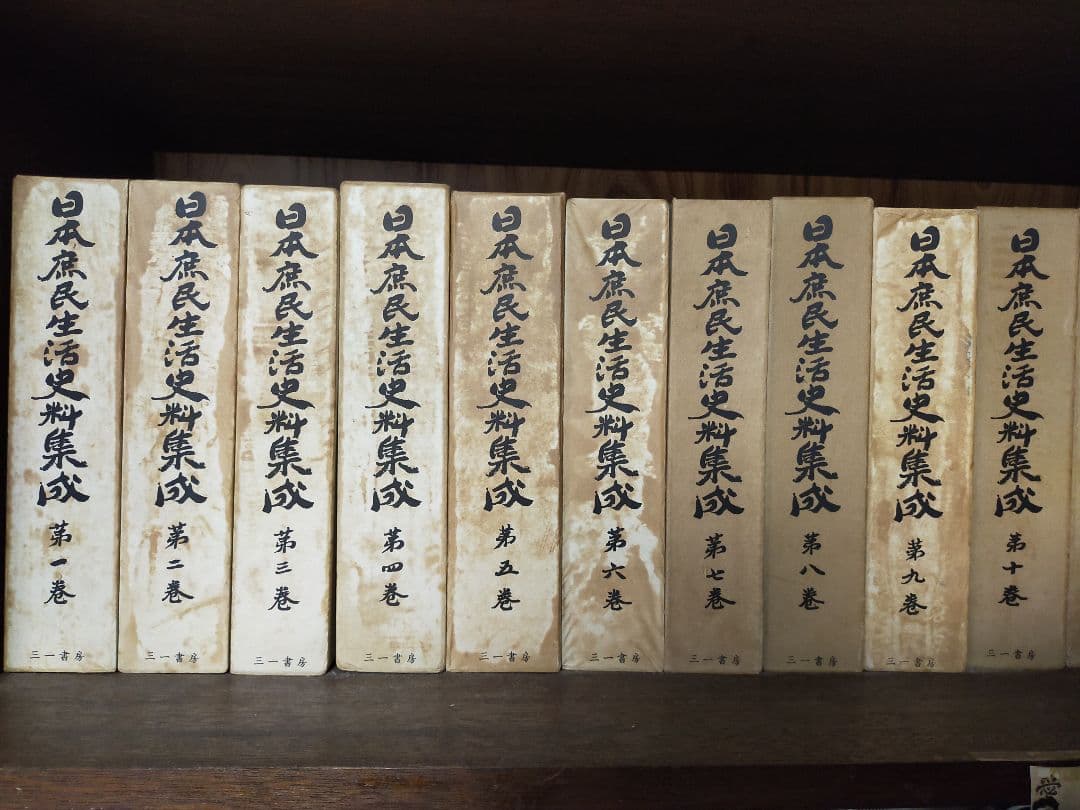 日本庶民生活史料集成
第一巻
三一書房
日本庶民生活史料集成
第二巻
三一書房
日本庶民生活史料集成
第三巻
三一書房
日本庶民生活史料集成
第四巻
三一書房
日本庶民生活史料集成
第五巻
三一書房
日本庶民生活史料集成
第六巻
三一書房
日本庶民生活史料集成
第七巻
三一書房
日本庶民生活史料集成
第八巻
三一書房
日本庶民生活史料集成
第九巻
三一書房
日本庶民生活史料集成
第十巻
三一書房